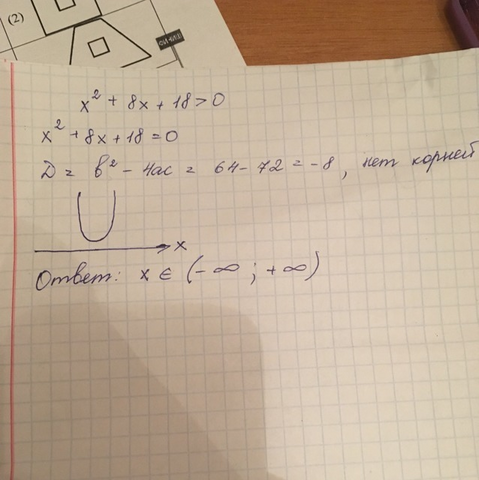 (2)
x² + 8x + 18 > 0
x² + 8x + 18 = 0
D = b² - 4ac = 64 - 72 = -8, нет корней
x
Ответ: x ∈ (-∞; +∞)